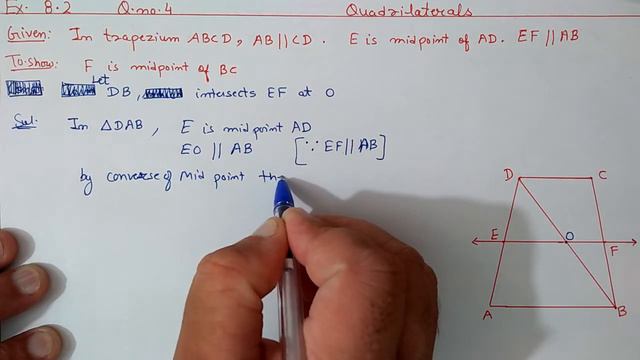 Ex. 8.2 Q.no.4 Quadrilaterals
Given: In trapezium ABCD, AB || CD. E is midpoint of AD. EF || AB
To show: F is midpoint of BC
Let DB, intersects EF at O
Sol: In △DAB, E is midpoint AD
EO || AB [∵ EF || AB]
by converse of Mid point the
D C
E O F
A B